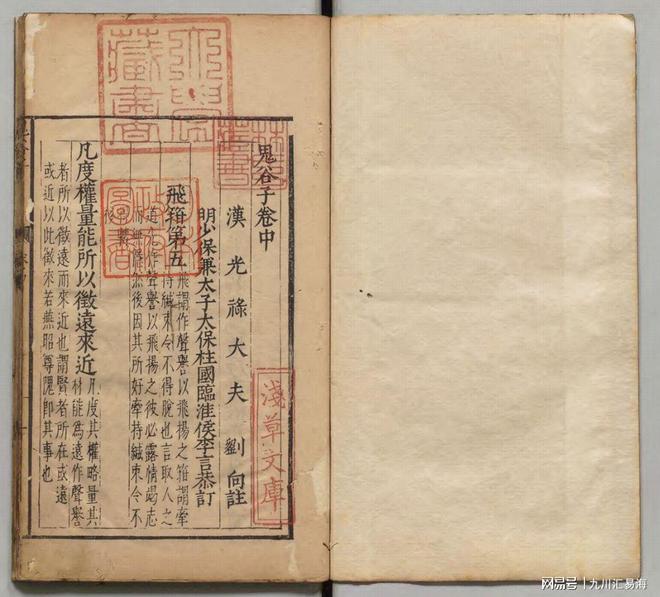 鬼谷子卷中
漢光祿大夫劉向註
明少保兼太子太保柱國臨淮侯李言恭訂
飛箝第五
飛謂作聲譽以飛揚之箝謂牽
持緘束令不得脫也言取人之
道先作聲譽以飛揚之彼必露情竭志
而無隱然後因其所好牽持緘束令不
凡度權量能所以徵遠來近
凡度其權略量其
材能爲遠作聲譽
者所以徵遠而來近也謂賢者所在或遠
或近以此徵來若燕昭尊隗卽其事也
淺草文庫
网易号 | 九川汇易海